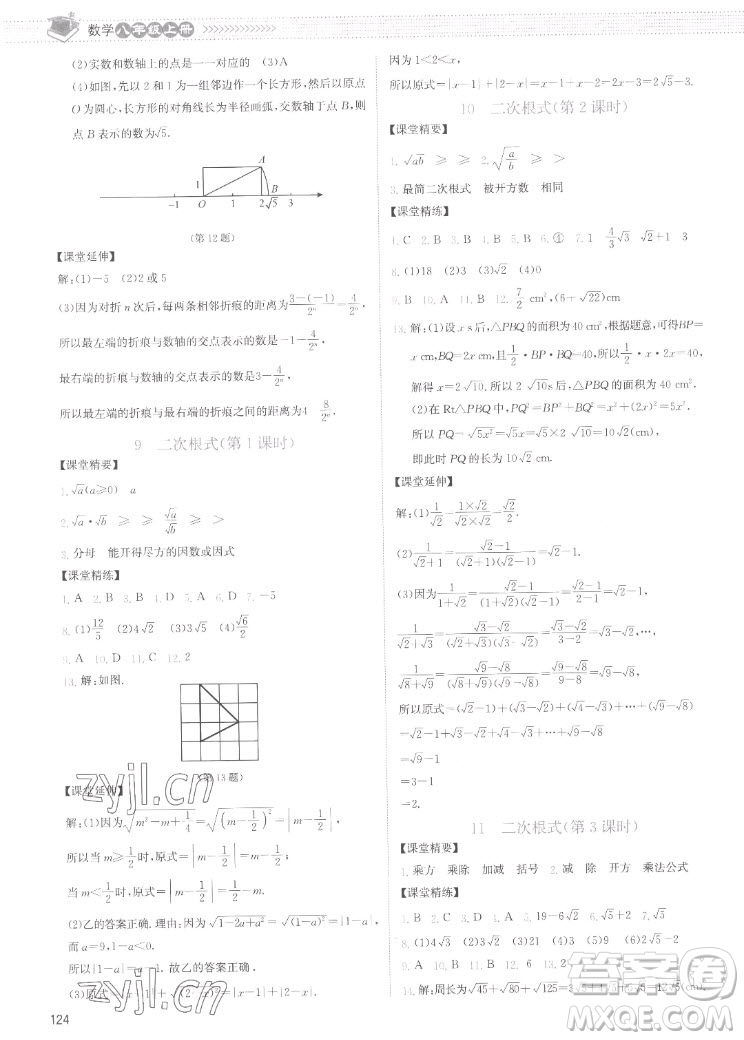 数学八年级上册
(2)实数和数轴上的点是一一对应的 (3)A
(4)如图,先以1和2为一组邻边作一个长方形,然后以原点
O为圆心,长方形的对角线长为半径画弧,交数轴于点B,则
点B表示的数为√5.
A
1
-1 O 1 2 √5 3
B
(第12题)
【课堂延伸】
解:(1)-5 (2)2或5
(3)因为对折n次后,每两条相邻折痕的距离为(3-(-1))/2ⁿ=4/2ⁿ,
所以最左端的折痕与数轴的交点表示的数是-1+4/2ⁿ,
最右端的折痕与数轴的交点表示的数是3-4/2ⁿ,
所以最左端的折痕与最右端的折痕的距离为4-8/2ⁿ.
9 二次根式(第1课时)
【课堂精要】
1.√a(a≥0) a
2.√a·√b ≥ ≥ √a/√b ≥ >
3.分母 能开得尽方的因数或因式
【课堂精练】
1.A 2.B 3.B 4.D 5.B 6.A 7.-5
8.(1)12/5 (2)4√2 (3)4√2 (4)√6/2
9.A 10.D 11.C 12.2
13.解:如图.
(第13题)
【课堂延伸】
解:(1)因为√(m²-m+1/4)=√((m-1/2)²)=|m-1/2|,
所以当m≥1/2时,原式=|m-1/2|=m-1/2;
当m<1/2时,原式=|m-1/2|=-m+1/2.
(2)乙的答案正确.理由:因为√(1-2a+a²)=√((1-a)²)=|1-a|,
而a=9,1-a<0.
所以|1-a|=a-1.故乙的答案正确.
(3)原式=√((x-1)²)+√((2-x)²)=|x-1|+|2-x|.
124
因为1<2<x,
所以原式=|x-1|+|2-x|=x-1+x-2=2x-3.
10 二次根式(第2课时)
【课堂精要】
1.√ab ≥ ≥ 2.√(a/b) ≥ >
3.最简二次根式 被开方数 相同
【课堂精练】
1.C 2.B 3.B 4.B 5.B 6.① 7.1 4/3√3 √3 √2+1 3
8.(1)18 (2)3 (3)√2 (4)0
9.B 10.A 11.B 12.7/2 cm² (6+√22)cm
13.解:(1)设x s后,△PBQ的面积为40 cm²,根据题意,可得BP=
x cm,BQ=2x cm,且1/2·BP·BQ=40,所以1/2·x·2x=40,
解得x=2√10,所以2√10s后,△PBQ的面积为40 cm².
(2)在Rt△PBQ中,PQ²=BP²+BQ²=x²+(2x)²=5x²,
所以PQ=√(5x²)=√(5×(2√10)²)=10√2,
即此时PQ的长为10√2 cm.
【课堂延伸】
解:(1)1/√2=(1×√2)/(√2×√2)=√2/2.
(2)1/(√2+1)=(√2-1)/((√2+1)(√2-1))=√2-1.
(3)因为1/(1+√2)=(√2-1)/((1+√2)(√2-1))=(√2-1)/(2-1)=√2-1,
1/(√2+√3)=(√3-√2)/((√2+√3)(√3-√2))=(√3-√2)/(3-2)=√3-√2,…,
1/(√8+√9)=(√9-√8)/((√8+√9)(√9-√8))=√9-√8,
所以原式=(√2-1)+(√3-√2)+(√4-√3)+…+(√9-√8)
=√9-1
=3-1
=2.
11 二次根式(第3课时)
【课堂精要】
1.乘方 乘除 加减 括号 2.减 除 开方 乘法公式
【课堂精练】
1.C 2.A 3.C 4.√2 5.19-6√2 6.√2 7.√5
14.解:周长为√45+√80+√125=3√5+4√5+5√5=12√5(cm).
zyjl.cn
zyjl.cn
答案圈
MXQE.COM